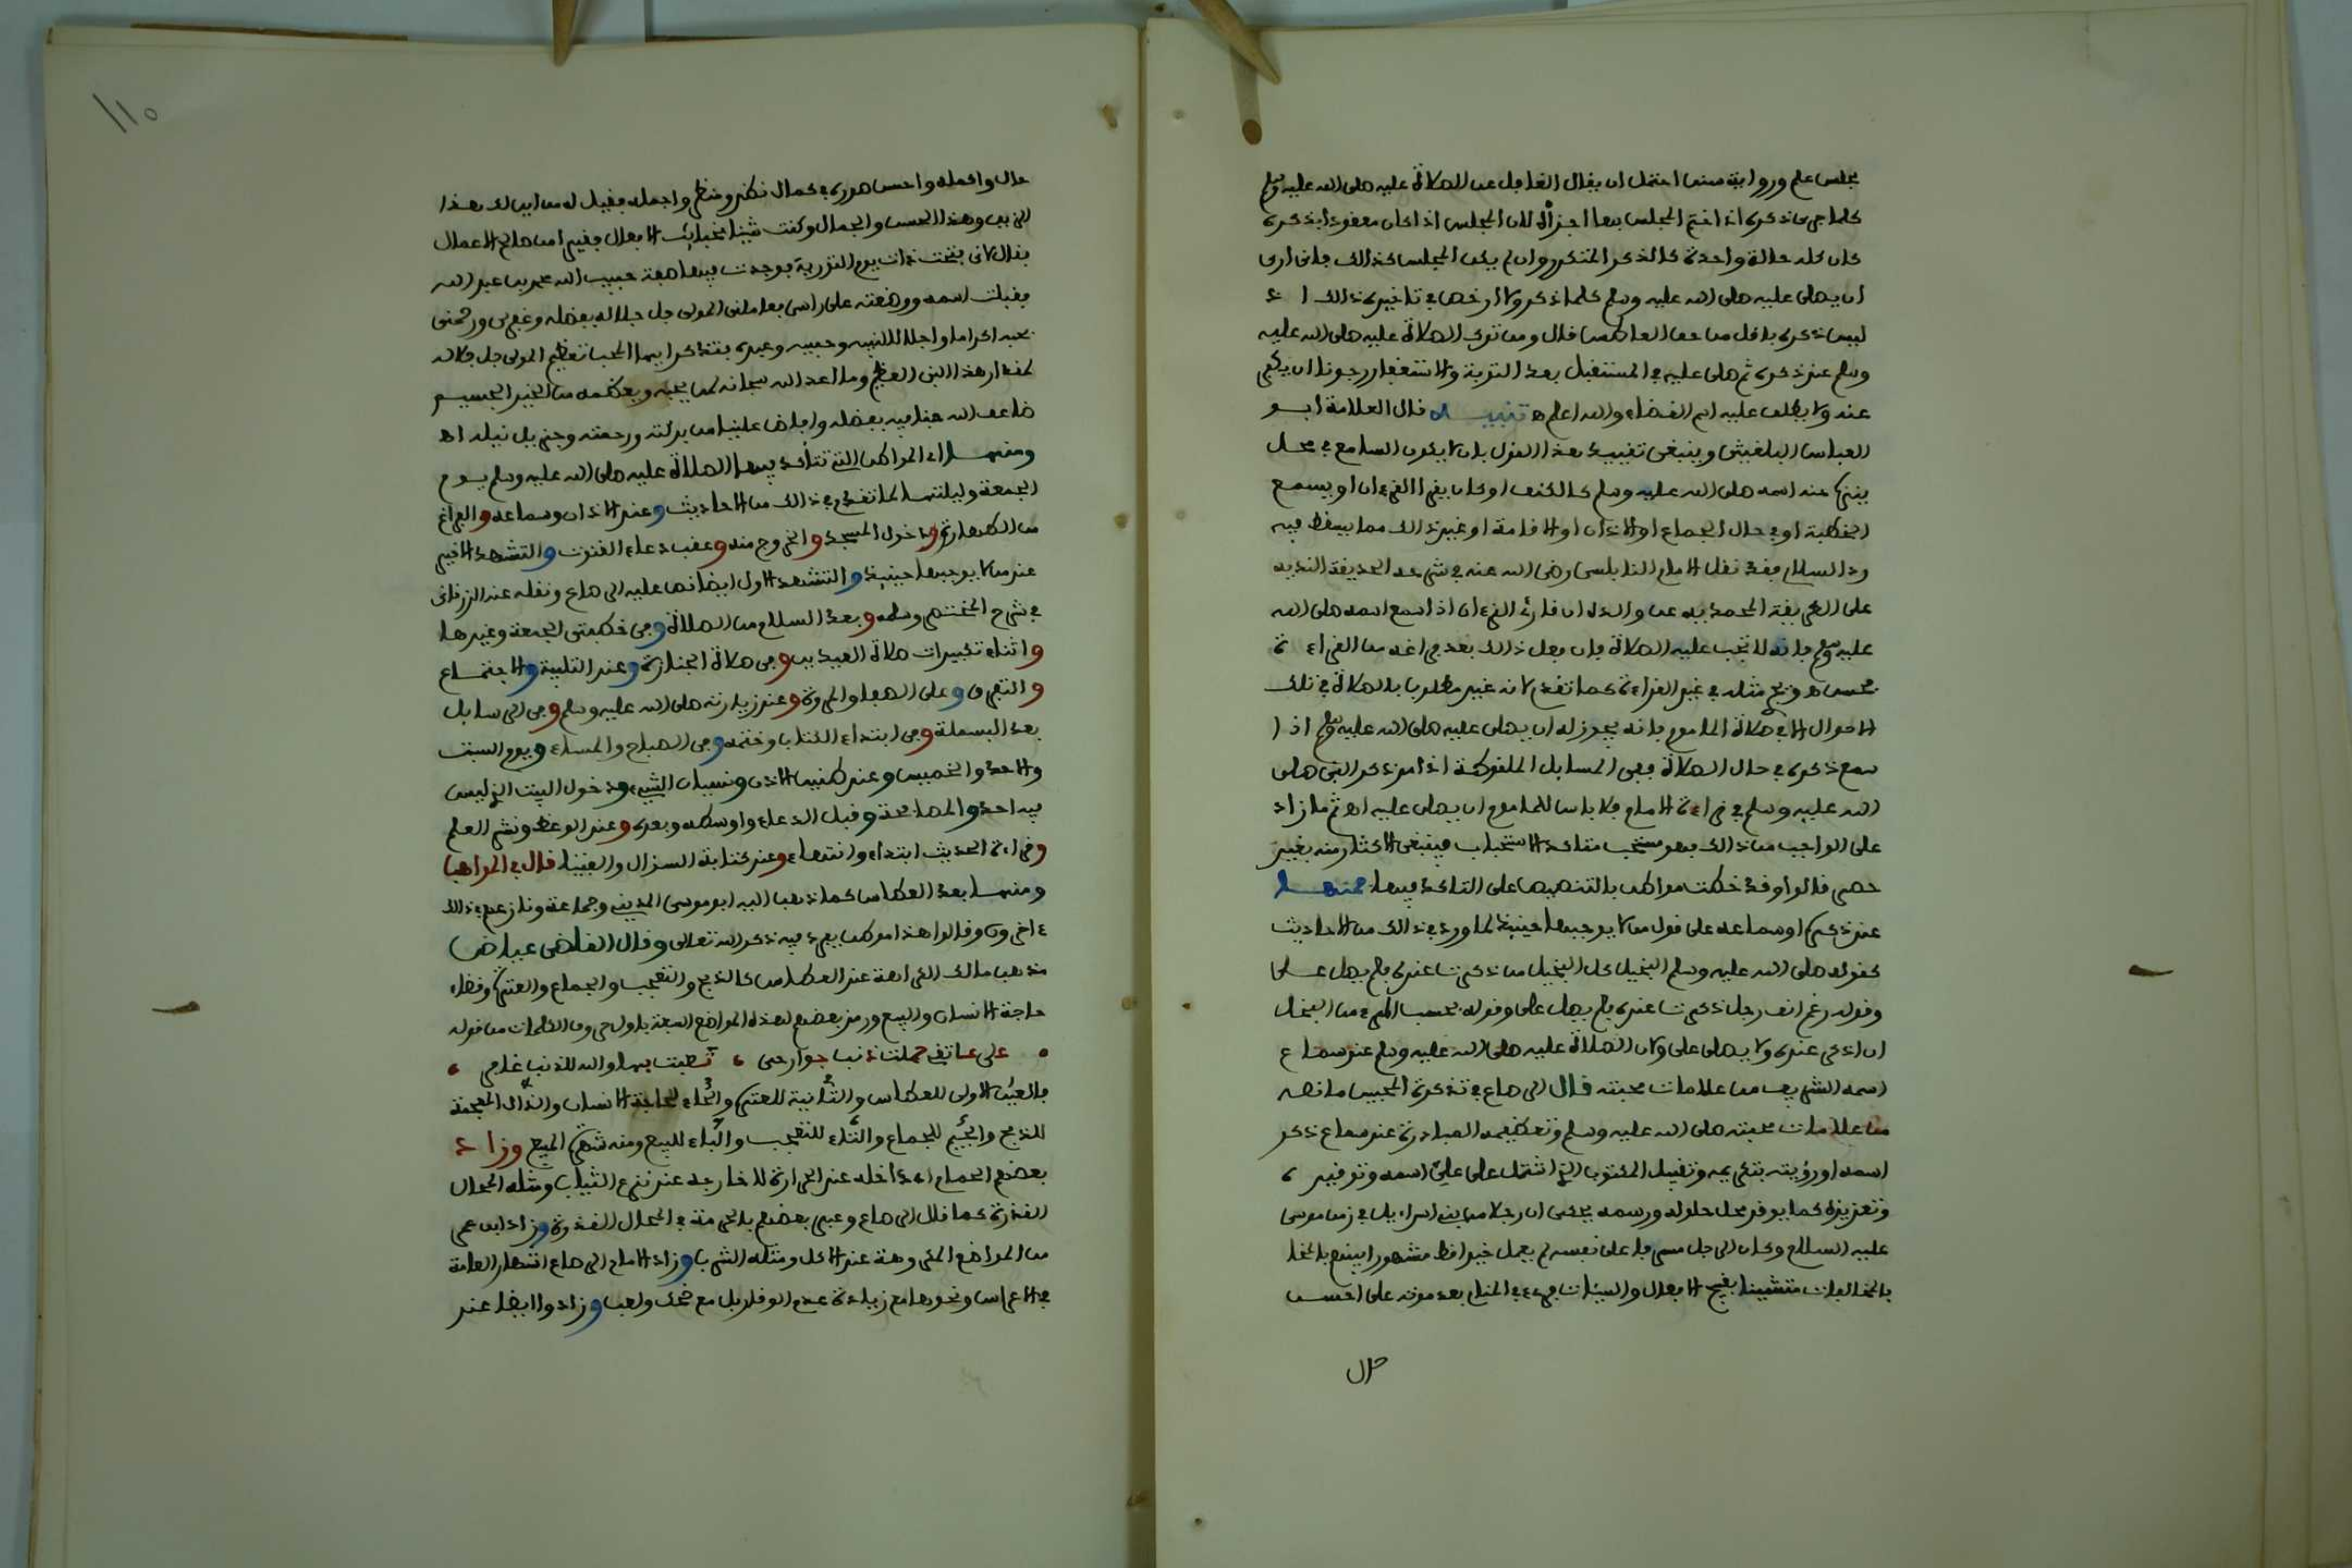 مجلس علم ورواية سنن احتمل ان يقال الغافل عن الصلاة عليه صلى الله عليه وسلم
كلما جرى ذكره اذا ختم المجلس بها اجزأه لان المجلس اذا كان معقودا بذكره
كان كله حالة واحدة كالذكر المتكرر وان لم يكن المجلس كذالك فانى ارى
ان يصلى عليه صلى الله عليه وسلم كلما ذكر ولا ارخص في تاخير ذالك اذ
ليس ذكره باقل من حق العاطس قال ومن ترك الصلاة عليه صلى الله عليه
وسلم عند ذكره ثم صلى عليه في المستقبل بعد التوبة والاستغفار رجونا ان يكفى
عنه ولا يطلق عليه اسم القضاء والله اعلم ه تنبيه قال العلامة ابو
العباس وينبغى تقييد هذا القول بان لا يكون السامع في محل
ينزه عنه اسمه صلى الله عليه وسلم كالكنف او كان يقرا القرءان او يسمع
الخطبة او في حال الجماع او الاذان او الاقامة او غير ذالك مما يسقط فيه
رد السلام فقد نقل الامام النابلسى رضى الله عنه في شرحه الحديقة الندية
على الطريقة المحمدية عن والده ان قارئ القرءان اذا سمع اسمه صلى الله
عليه وسلم فانه لا تجب عليه الصلاة فان فعل ذالك بعد فراغه من القراءة
فحسن ه مثله في غير القراءة كما تقدم لانه غير مطلوب بالصلاة في تلك
الاحوال الا في صلاة الماموم فانه يجوز له ان يصلى عليه صلى الله عليه وسلم اذا
سمع ذكره في حال الصلاة ففى المسايل الملقوطة اذا مر ذكر النبى صلى
الله عليه وسلم في قراءة الامام فلا باس للماموم ان يصلى عليه اه ثم ما زاد
على الواجب من ذالك فهو مستحب متاكد الاستحباب فينبغى الاكثار منه بغير
حصر قالوا وقد خصت مواطن بالتنصيص على التاكد فيها فمنها
عند ذكره او سماعه على قول من لا يوجبها حينئذ لما ورد في ذالك من الاحاديث
كقوله صلى الله عليه وسلم البخيل كل البخيل من ذكرت عنده فلم يصل على
وقوله رغم انف رجل ذكرت عنده فلم يصل على وقوله بحسب المرء من البخل
ان اذكر عنده ولا يصلى على ولان الصلاة عليه صلى الله عليه وسلم عند سماع
اسمه الشريف من علامات محبته قال الرصاع في تذكرة المحبين ما نصه
من علامات محبته صلى الله عليه وسلم وتعظيمه المبادرة عند سماع ذكر
اسمه او رؤيته بتكريمه وتقبيل المكتوب الذى اشتمل على علي اسمه وتوقيره
وتعزيزه كما يوقر محل حلوله ورسمه يحكى ان رجلا من بنى اسراءيل في زمن موسى
عليه السلام وكان الرجل مسرفا على نفسه لم يعمل خيرا قط مشهورا بينهم
بالمخالفات متشينا بقبيح الافعال والسيئات فرءى في المنام بعد موته على احسن
حال
١١٥
حال واكمله واحسن صورة في كمال نظر ومنظر واجمله فقيل له من اين لك هذا
الزين وهذا الحسن والجمال وكنت شينا بخبائث الافعال فقير من صالح الاعمال
فقال لانى فتحت ذات يوم التورية فوجدت فيها صفة حبيب الله محمد بن عبد الله
فقبلت اسمه ووضعته على راسى فعاملنى المولى جل جلاله بفضله وغفر لى ورحمنى
بحبه اكراما واجلالا لنبيه وحبيبه وعبده فتذكر ايها المحب تعظيم المولى جل جلاله
لمقدار هذا النبى العظيم وما اعد الله سبحانه لمن يحبه ويعظمه من الخير الجسيم
ضاعف الله حبنا فيه بفضله وافاض علينا من بركته ورحمته وجزيل نيله اه
ومنها اى المواطن التى تتاكد فيها الصلاة عليه صلى الله عليه وسلم يوم
الجمعة وليلتها لما تقدم في ذالك من الاحاديث وعند الاذان وسماعه والفراغ
من الطهارة ودخول المسجد والخروج منه وعقب دعاء القنوت والتشهد الاخير
عند من لا يوجبها حينئذ والتشهد الاول ايضا نص عليه الرصاع ونقله عنه الزرقانى
في شرح المختصر وسلمه وبعد السلام من الصلاة وفى خطبتى الجمعة وغيرها
واثناء تكبيرات صلاة العيدين وفى صلاة الجنازة وعند التلبية والاجتماع
والتفرق وعلى الصفا والمروة وعند زيارته صلى الله عليه وسلم وفى الرسايل
بعد البسملة وفى ابتداء الكتاب وختمه وفى الصباح والمساء ويوم السبت
والاحد والخميس وعند طنين الاذن ونسيان الشيء ودخول البيت الذى ليس
فيه احد والمصافحة وقبل الدعاء واوسطه وبعده وعند الوعظ ونشر العلم
وقراءة الحديث ابتداء وانتهاء وعند كتابة السؤال والفتيا قال في المواهب
ومنها بعد العطاس كما ذهب اليه ابو موسى المدينى وجماعة ونازعهم في ذالك
ءاخرون وقالوا هذا موطن يفرد فيه ذكر الله تعالى وقال القاضى عياض
مذهب مالك الكراهة عند العطاس كالذبح والتعجب والجماع والعثرة وقضاء
حاجة الانسان والبيع ورمز بعضهم لهذه المواضع السبعة باول حروف الكلمات من قوله
على عاتقى حملت ذنب جوارحى ، تعبت بها والله للذنب غافر ،
فالعين الاولى للعطاس والثانية للعثرة والحاء لحاجة الانسان والذال المعجمة
للذبح والجيم للجماع والتاء للتعجب والباء للبيع ومنه شهرة المبيع وزاد
بعضهم الحمام اى داخله عند الحرارة لا خارجه عند نزع الثياب ومثله المحال
القذرة كما قال الرصاع وعبر بعضهم بالحرمة في المحال القذرة وزاد ابن عمر
من المواضع المكروهة عند الاكل ومثله الشرب وزاد الامام الرصاع اشهار العامة
في الاعراس ونحوها مع زيادة عدم الوقار بل مع ضحك ولعب وزادوا ايضا عند